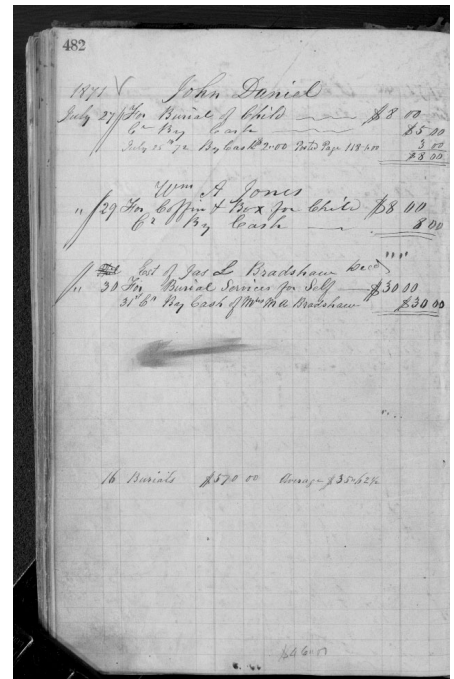 482
1871 John Daniel
July 27 For Burial of Child $8 00
Cr By Cash $5 00
July 25th 72 By Cash 2.00 Posted Page 118 3 00
$8 00
Wm A Jones
" 29 For Coffin & Box for Child $8 00
Cr By Cash 8 00
Est of Jas L Bradshaw Decd
" 30 For Burial Services for Self $30 00
31st Cr By Cash of Mrs M A Bradshaw $30 00
16 Burials $570 00 Average $35.62½